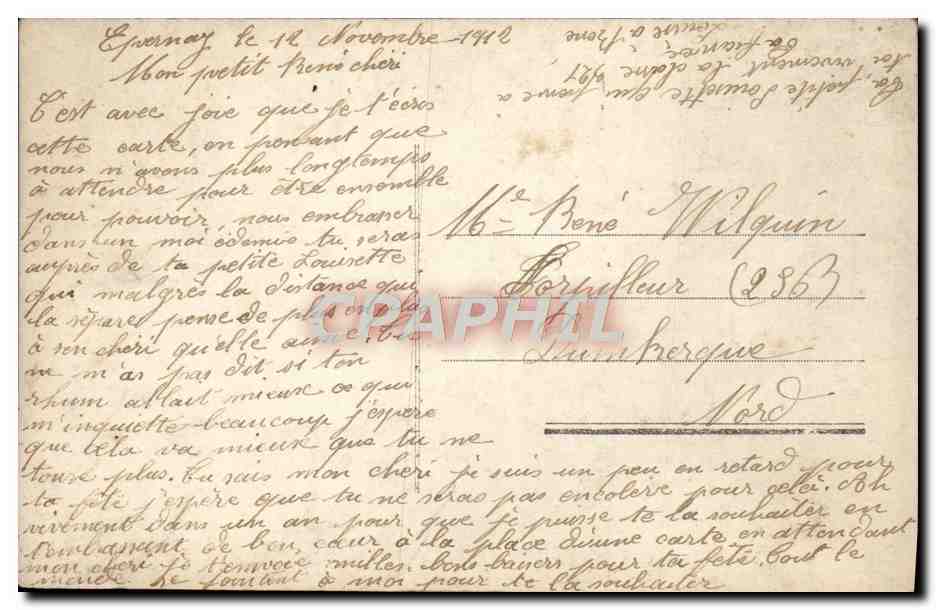 Epernay le 12 Novembre 1912
Mon petit René chéri
C'est avec joie que je t'écris
cette carte, en pensant que
nous n'avons plus longtemps
à attendre pour être ensemble
pour pouvoir nous embrasser
dans un moi édemis tu seras
auprès de ta petite Louisette
qui malgrés la distance qui
la sépare pense de plus en plus
à son chéri qu'elle aime. tu
ne m'as pas dit si ton
rhum allait mieux ce qui
m'inquiette beaucoup j'espère
que cela va mieux que tu ne
tousse plus. tu sais mon chéri je suis un peu en retard pour
ta fête j'espère que tu ne seras pas encolère pour celà. Ah
vivement dans un an pour que je puisse te la souhaiter en
t'embrassant de bon cœur à la place d'une carte en attendant
mon chéri je t'envoie milles bons baisers pour ta fête. tout le
monde se joint à moi pour te la souhaiter
Ta petite Louisette qui pense a
toi vivement la classe
ta fiancée
Louise a René
Mr René Wilquin
Torpilleur (236)
Dunkerque
Nord
CPAPHIL